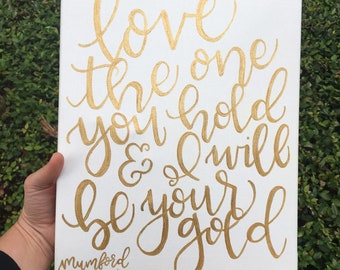 love
the one
you hold
& I will
be your
gold
mumford